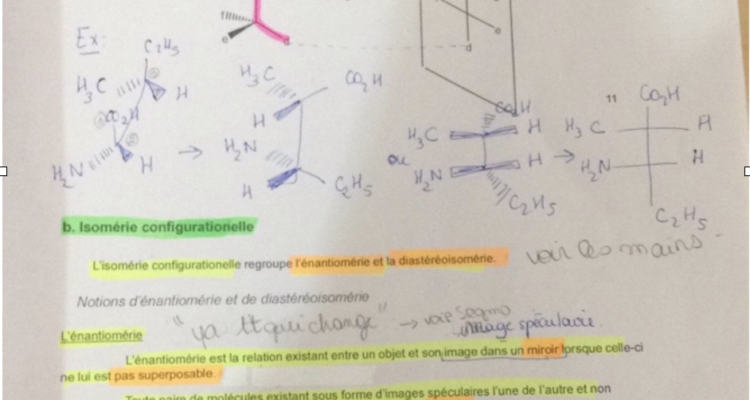 Ex:
C₂H₅
H₃C
H
CO₂H
H₂N
H
H₃C
CO₂H
H
H₂N
H
C₂H₅
ou
CO₂H
H₃C
H
H₂N
H
C₂H₅
CO₂H
H₃C
H
H₂N
H
C₂H₅
e
d
e
d
b. Isomérie configurationelle
L'isomérie configurationelle regroupe l'énantiomérie et la diastéréoisomérie.
voir les mains
Notions d'énantiomérie et de diastéréoisomérie
"ya tt qui change" → voir
image spéculaire.
L'énantiomérie
L'énantiomérie est la relation existant entre un objet et son image dans un miroir lorsque celle-ci
ne lui est pas superposable.
Toute paire de molécules existant sous forme d'images spéculaires l'une de l'autre et non